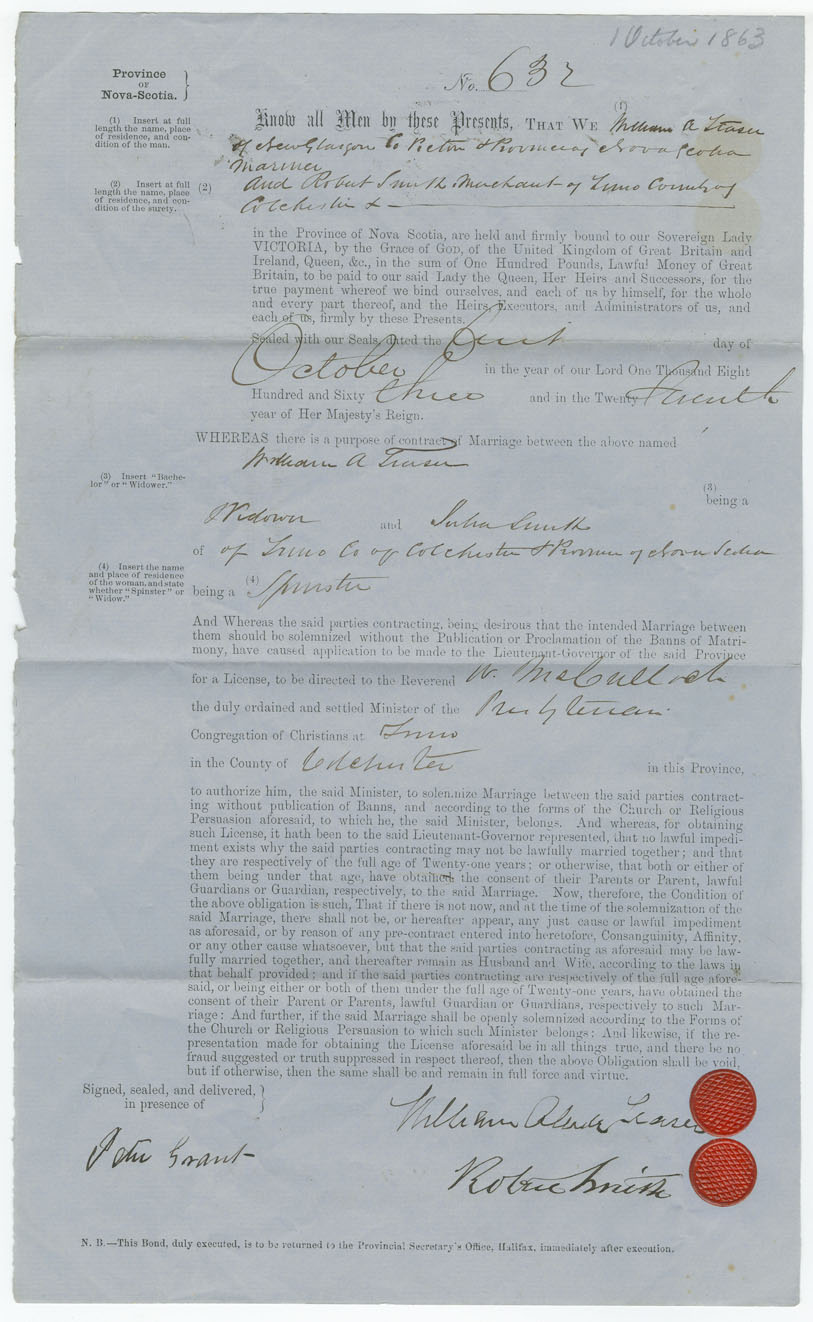 1 October 1863
No. 632
Province
OF
Nova-Scotia. }
(1) Insert at full
length the name, place
of residence, and con-
dition of the man.
(1)
Know all Men by these Presents, THAT WE William A Fraser
of New Glasgow Co Pictou & Province of Nova Scotia
Mariner
(2) Insert at full
length the name, place
of residence, and con-
dition of the surety.
(2) And Robert Smith Merchant of Truro County of
Colchester &
in the Province of Nova Scotia, are held and firmly bound to our Sovereign Lady
VICTORIA, by the Grace of GOD, of the United Kingdom of Great Britain and
Ireland, Queen, &c., in the sum of One Hundred Pounds, Lawful Money of Great
Britain, to be paid to our said Lady the Queen, Her Heirs and Successors, for the
true payment whereof we bind ourselves, and each of us by himself, for the whole
and every part thereof, and the Heirs, Executors, and Administrators of us, and
each of us, firmly by these Presents.
Sealed with our Seals, dated the first day of
October in the year of our Lord One Thousand Eight
Hundred and Sixty three and in the Twenty Seventh
year of Her Majesty's Reign.
WHEREAS there is a purpose of contract of Marriage between the above named
William A Fraser
(3) Insert "Bache-
lor" or "Widower."
(3)
being a
Widower and Julia Smith
of of Truro Co of Colchester & Province of Nova Scotia
(4) Insert the name
and place of residence
of the woman, and state
whether "Spinster" or
"Widow."
being a (4) Spinster
And Whereas the said parties contracting, being desirous that the intended Marriage between
them should be solemnized without the Publication or Proclamation of the Banns of Matri-
mony, have caused application to be made to the Lieutenant-Governor of the said Province
for a License, to be directed to the Reverend W. McCulloch
the duly ordained and settled Minister of the Presbyterian
Congregation of Christians at Truro
in the County of Colchester in this Province,
to authorize him, the said Minister, to solemnize Marriage between the said parties contract-
ing without publication of Banns, and according to the forms of the Church or Religious
Persuasion aforesaid, to which he, the said Minister, belongs. And whereas, for obtaining
such License, it hath been to the said Lieutenant-Governor represented, that no lawful impedi-
ment exists why the said parties contracting may not be lawfully married together; and that
they are respectively of the full age of Twenty-one years; or otherwise, that both or either of
them being under that age, have obtained the consent of their Parents or Parent, lawful
Guardians or Guardian, respectively, to the said Marriage. Now, therefore, the Condition of
the above obligation is such, That if there is not now, and at the time of the solemnization of the
said Marriage, there shall not be, or hereafter appear, any just cause or lawful impediment
as aforesaid, or by reason of any pre-contract entered into heretofore, Consanguinity, Affinity,
or any other cause whatsoever, but that the said parties contracting as aforesaid may be law-
fully married together, and thereafter remain as Husband and Wife, according to the laws in
that behalf provided; and if the said parties contracting are respectively of the full age afore-
said, or being either or both of them under the full age of Twenty-one years, have obtained the
consent of their Parent or Parents, lawful Guardian or Guardians, respectively to such Mar-
riage: And further, if the said Marriage shall be openly solemnized according to the Forms of
the Church or Religious Persuasion to which such Minister belongs: And likewise, if the re-
presentation made for obtaining the License aforesaid be in all things true, and there be no
fraud suggested or truth suppressed in respect thereof, then the above Obligation shall be void,
but if otherwise, then the same shall be and remain in full force and virtue.
Signed, sealed, and delivered, }
in presence of
William Fraser
Peter Grant
Robert Smith
N. B.—This Bond, duly executed, is to be returned to the Provincial Secretary's Office, Halifax, immediately after execution.